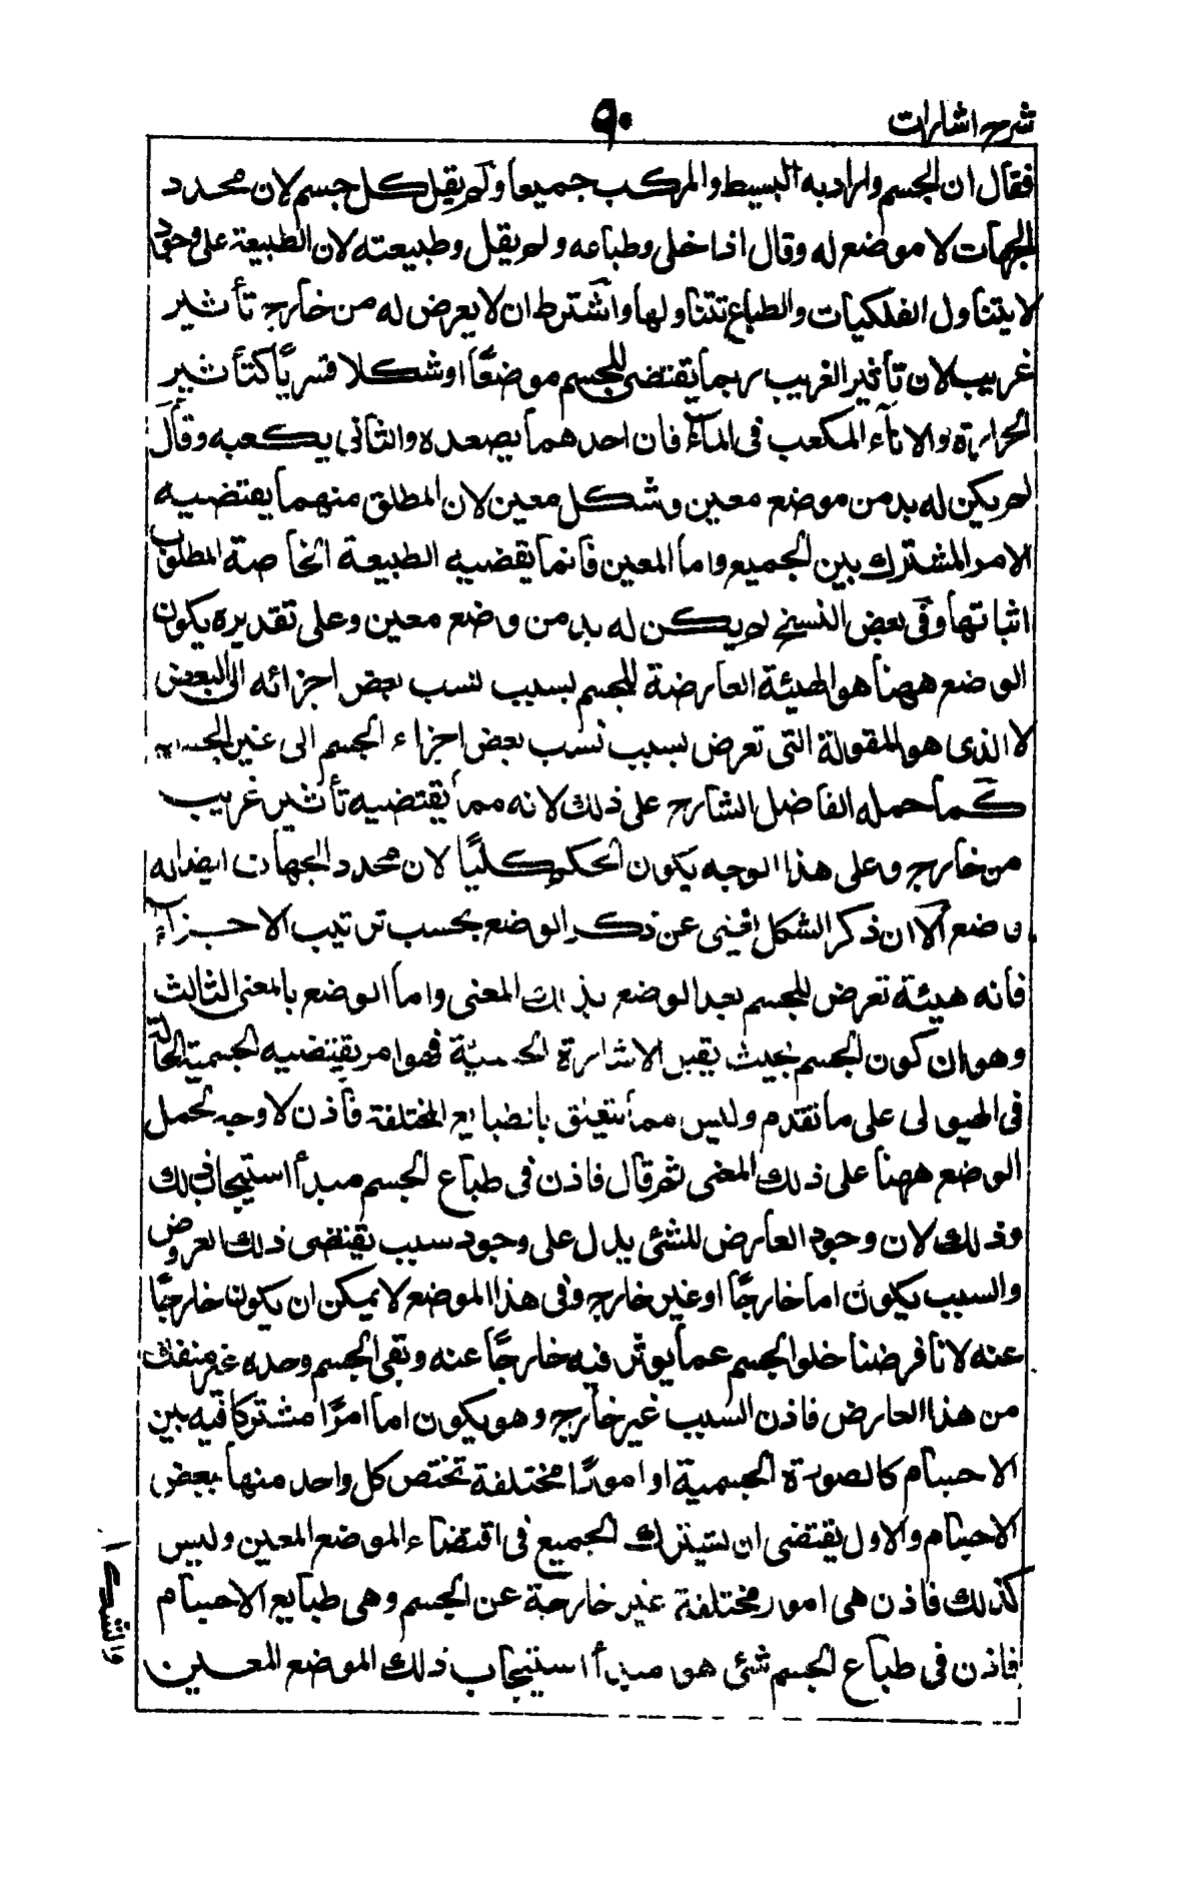 شرح اشارات
٩٠
فقال ان الجسم والمراد به البسيط والمركب جميعا ولم يقل كل جسم لان محدد
الجهات لا موضع له وقال اذا خلى وطباعه ولم يقل وطبيعته لان الطبيعة على وجه
لا يتناول الفلكيات والطباع تتناولها واشترط ان لا يعرض له من خارج تأثير
غريب لان تأثير الغريب ربما يقتضى للجسم موضعًا او شكلا قسريًا كتأثير
الحرارة والاناء المكعب فى الماء فان احدهما يصعده والثانى يكعبه وقال
لم يكن له بد من موضع معين وشكل معين لان المطلق منهما يقتضيه
الامر المشترك بين الجميع واما المعين فانما يقضيه الطبيعة الخاصة المطلوب
اثباتها وفى بعض النسخ لم يكن له بد من وضع معين وعلى تقديره يكون
الوضع ههنا هو الهيئة العارضة للجسم بسبب نسب بعض اجزائه الى البعض
لا الذى هو المقولة التى تعرض بسبب نسب بعض اجزاء الجسم الى غير الجسم
كما حمله الفاضل الشارح على ذلك لانه مما يقتضيه تأثير غريب
من خارج وعلى هذا الوجه يكون الحكم كليًا لان محدد الجهات ايضا له
وضع الا ان ذكر الشكل يغنى عن ذكر الوضع بحسب ترتيب الاجزاء
فانه هيئة تعرض للجسم بعد الوضع بذلك المعنى واما الوضع بالمعنى الثالث
وهو ان كون الجسم بحيث يقبل الاشارة الحسية فهو امر يقتضيه الجسمية الحالة
فى الهيولى على ما تقدم وليس مما يتعلق بالطبايع المختلفة فاذن لا وجه لحمل
الوضع ههنا على ذلك المعنى ثم قال فاذن فى طباع الجسم مبدأ استيجاب ذلك
وذلك لان وجود العارض للشئ يدل على وجود سبب يقتضى ذلك العروض
والسبب يكون اما خارجًا او غير خارج وفى هذا الموضع لا يمكن ان يكون خارجًا
عنه لانا فرضنا خلو الجسم عما يوثر فيه خارجًا عنه وبقى الجسم وحده غير منفك
من هذا العارض فاذن السبب غير خارج وهو يكون اما امرًا مشتركا فيه بين
الاجسام كالصورة الجسمية او امورًا مختلفة تختص كل واحد منها ببعض
الاجسام والاول يقتضى ان يشترك الجميع فى اقتضاء الموضع المعين وليس
كذلك فاذن هى امور مختلفة غير خارجة عن الجسم وهى طبايع الاجسام
فاذن فى طباع الجسم شئ هو مبدأ استيجاب ذلك الموضع المعين
والشكل